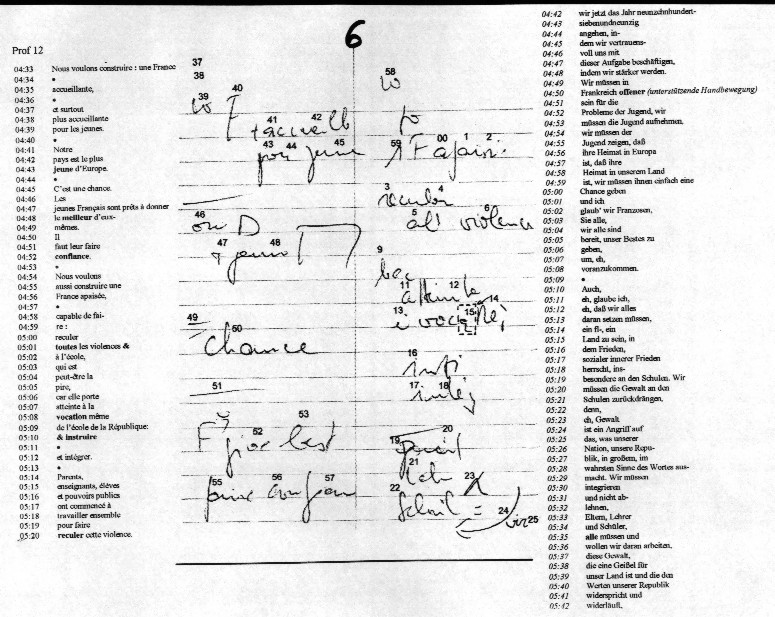 6
Prof 12
04:33 Nous voulons construire : une France
04:34 •
04:35 accueillante,
04:36 •
04:37 et surtout
04:38 plus accueillante
04:39 pour les jeunes.
04:40 •
04:41 Notre
04:42 pays est le plus
04:43 jeune d'Europe.
04:44 •
04:45 C'est une chance.
04:46 Les
04:47 jeunes Français sont prêts à donner
04:48 le meilleur d'eux-
04:49 mêmes.
04:50 Il
04:51 faut leur faire
04:52 confiance.
04:53 •
04:54 Nous voulons
04:55 aussi construire une
04:56 France apaisée,
04:57 •
04:58 capable de fai-
04:59 re :
05:00 reculer
05:01 toutes les violences &
05:02 à l'école,
05:03 qui est
05:04 peut-être la
05:05 pire,
05:06 car elle porte
05:07 atteinte à la
05:08 vocation même
05:09 de l'école de la République:
05:10 & instruire
05:11 •
05:12 et intégrer.
05:13 •
05:14 Parents,
05:15 enseignants, élèves
05:16 et pouvoirs publics
05:17 ont commencé à
05:18 travailler ensemble
05:19 pour faire
05:20 reculer cette violence.
37
38
39 40
41 42
43 44 45
46
on D
47 48
49
50
chance
51
52 53
F best
55 56 57
58
59 00 1 2
3 4
5 6
à l' violence
9
11 12
13 15 14
16
17 18
19 20
21
22 23
24 25
04:42 wir jetzt das Jahr neunzehnhundert-
04:43 siebenundneunzig
04:44 angehen, in-
04:45 dem wir vertrauens-
04:46 voll uns mit
04:47 dieser Aufgabe beschäftigen,
04:48 indem wir stärker werden.
04:49 Wir müssen in
04:50 Frankreich offener (unterstützende Handbewegung)
04:51 sein für die
04:52 Probleme der Jugend, wir
04:53 müssen die Jugend aufnehmen.
04:54 wir müssen der
04:55 Jugend zeigen, daß
04:56 ihre Heimat in Europa
04:57 ist, daß ihre
04:58 Heimat in unserem Land
04:59 ist, wir müssen ihnen einfach eine
05:00 Chance geben
05:01 und ich
05:02 glaub' wir Franzosen,
05:03 Sie alle,
05:04 wir alle sind
05:05 bereit, unser Bestes zu
05:06 geben,
05:07 um, eh,
05:08 voranzukommen.
05:09 •
05:10 Auch,
05:11 eh, glaube ich,
05:12 eh, daß wir alles
05:13 daran setzen müssen,
05:14 ein fl-, ein
05:15 Land zu sein, in
05:16 dem Frieden,
05:17 sozialer innerer Frieden
05:18 herrscht, ins-
05:19 besondere an den Schulen. Wir
05:20 müssen die Gewalt an den
05:21 Schulen zurückdrängen,
05:22 denn,
05:23 eh, Gewalt
05:24 ist ein Angriff auf
05:25 das, was unserer
05:26 Nation, unsere Repu-
05:27 blik, in großem, im
05:28 wahrsten Sinne des Wortes aus-
05:29 macht. Wir müssen
05:30 integrieren
05:31 und nicht ab-
05:32 lehnen,
05:33 Eltern, Lehrer
05:34 und Schüler,
05:35 alle müssen und
05:36 wollen wir daran arbeiten,
05:37 diese Gewalt,
05:38 die eine Geißel für
05:39 unser Land ist und die den
05:40 Werten unserer Republik
05:41 widerspricht und
05:42 widerläuft.